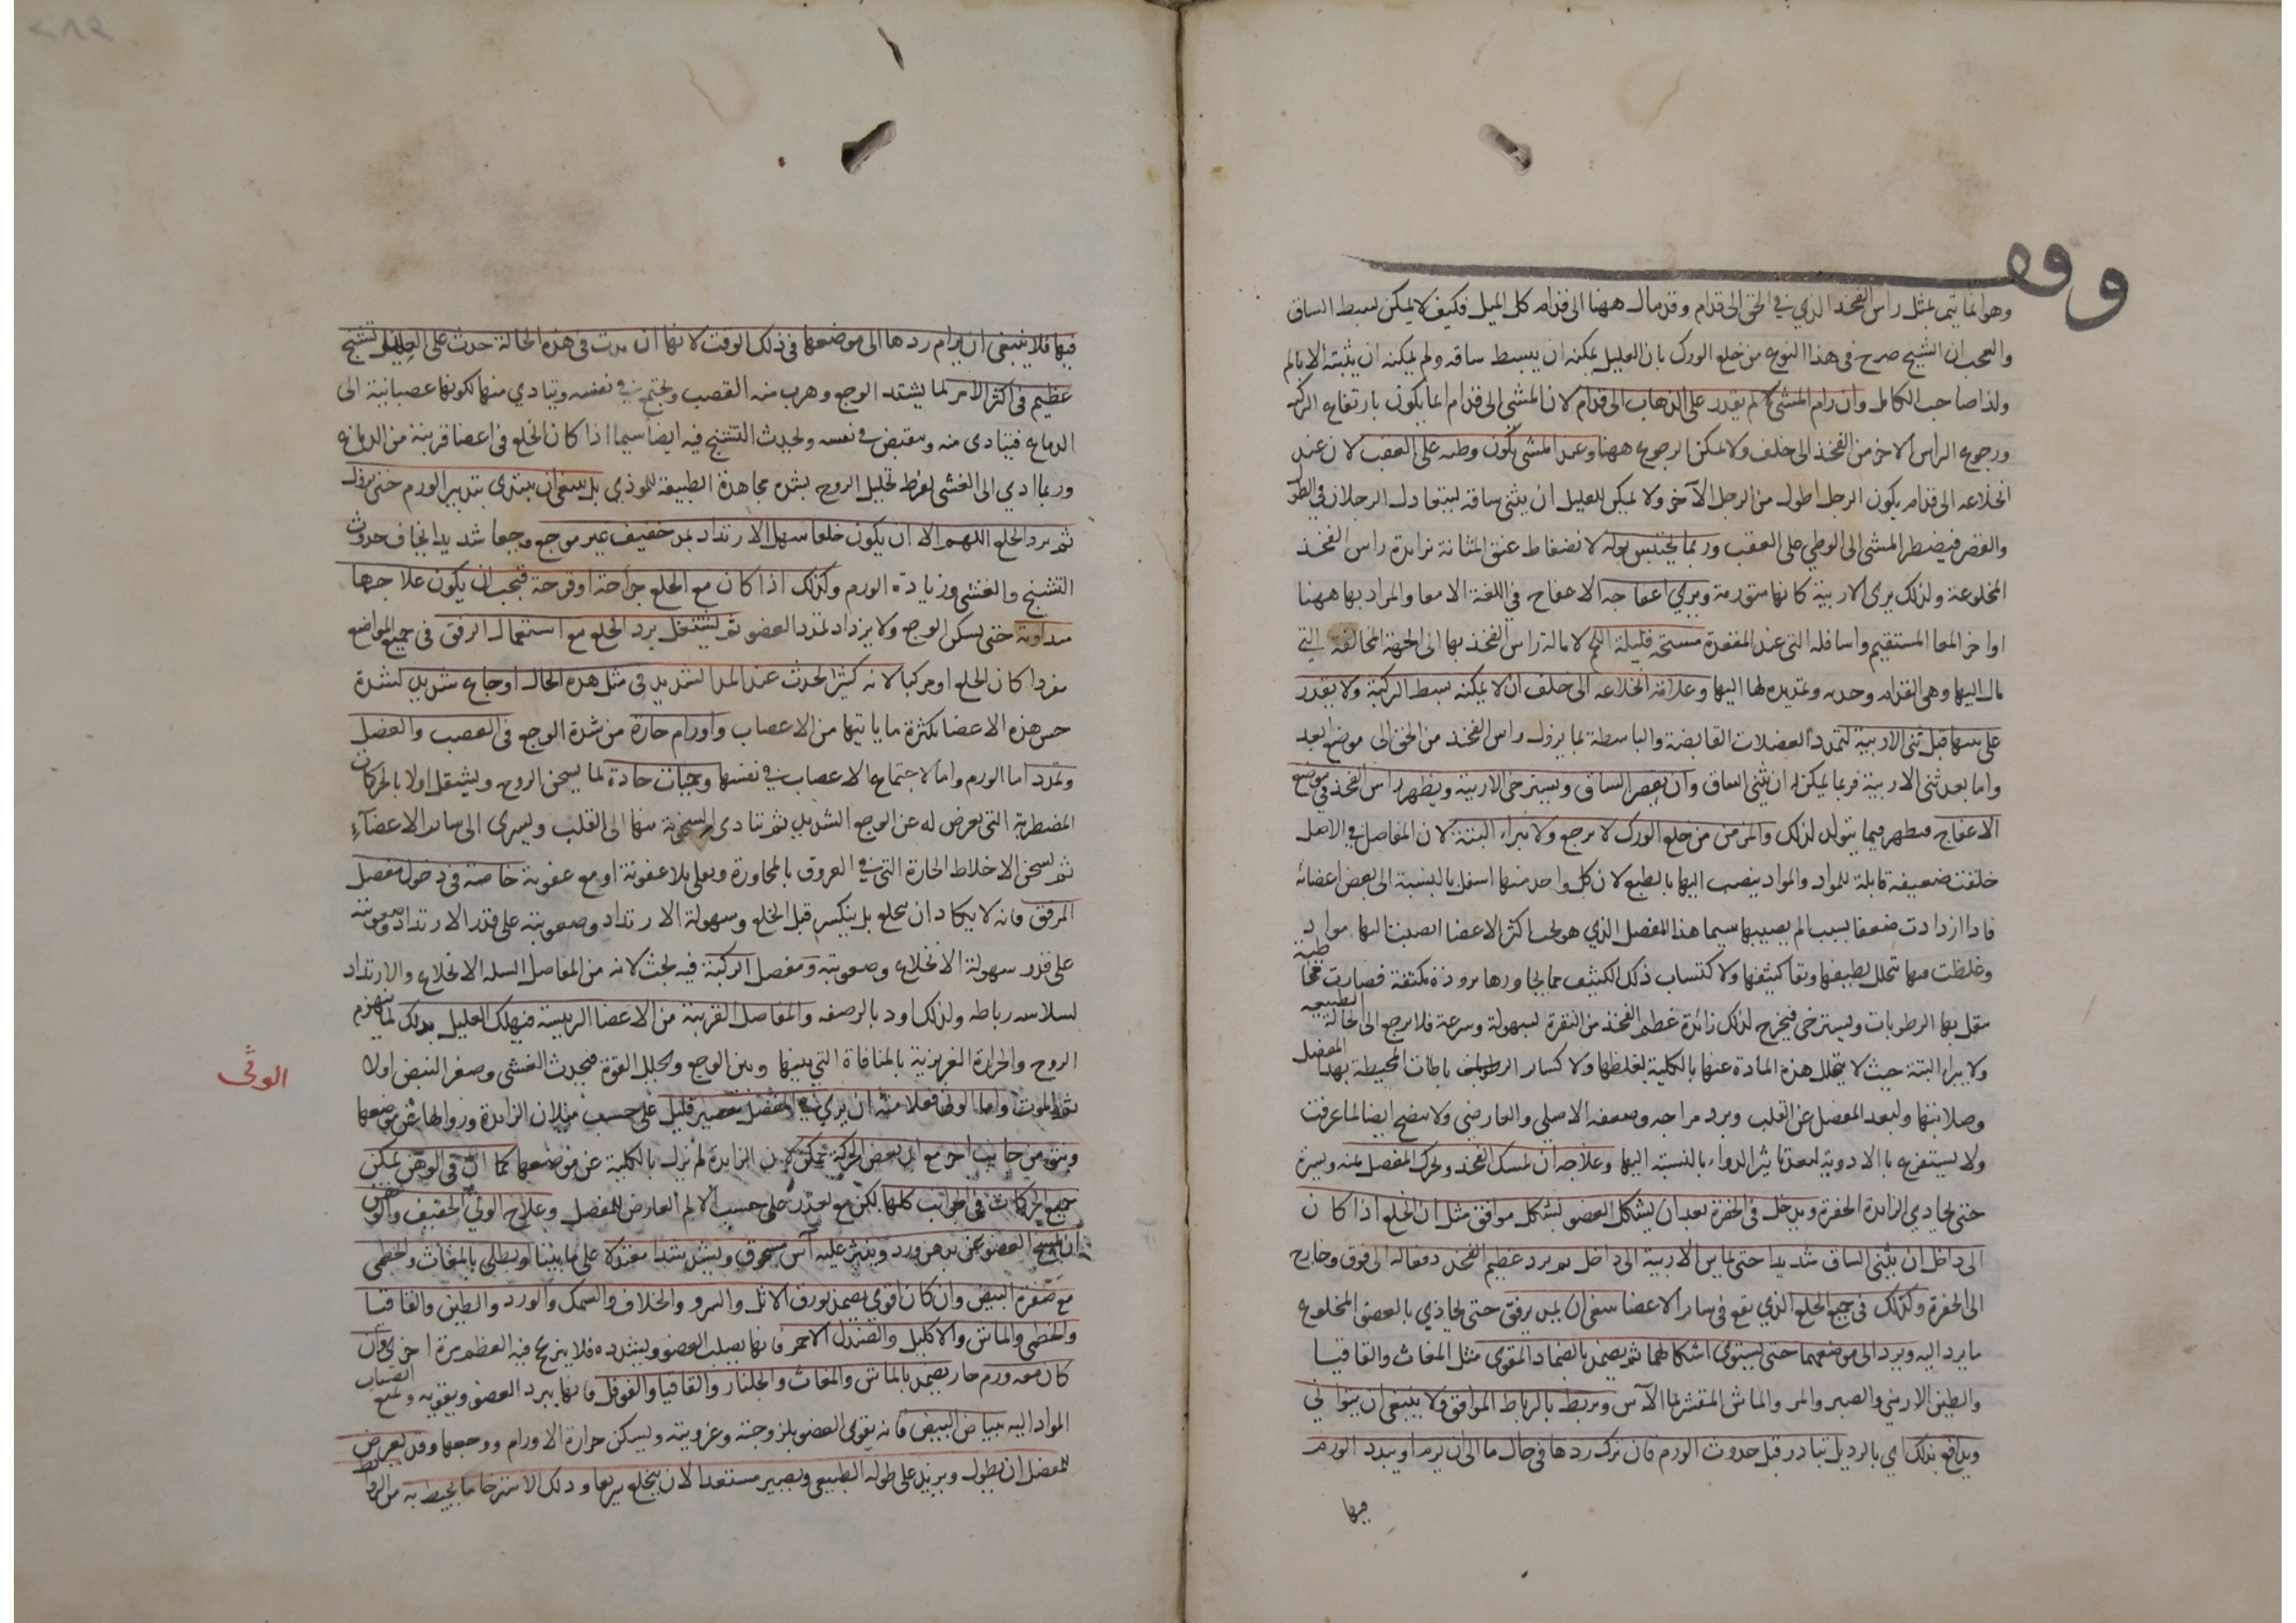 وقف
وهو انما يتم بمثل راس الفخذ الذي في الحق الى قدام وقد مال ههنا الى قدام كل الميل فكيف لا يمكن لبسط الساق
والعجب ان الشيخ صرح في هذا النوع من خلع الورك بان العليل يمكنه ان يبسط ساقه ولم يمكنه ان يثنيه الا بالم
ولذا صاحب الكامل وان رام المشي لم يقدر على الذهاب الى قدام لان المشي الى قدام انما يكون بارتفاع الركبة
ورجوع الراس الاخر من الفخذ الى خلف ولا يمكن الرجوع ههنا وعند المشي يكون وطئه على العقب لان عند
انخلاعه الى قدام يكون الرجل اطول من الرجل الآخر ولا يمكن للعليل ان يثني ساقه ليتعادل الرجلان في الطول
والقصر فيضطر المشي الى الوطي على العقب وربما يحتبس بوله لانضغاط عنق المثانة بزائدة راس الفخذ
المخلوعة ولذلك يرى الاربية كانها متورمة ويرى اعفاجه الاعفاج في اللغة الامعا والمراد بها ههنا
اواخر المعا المستقيم واسافله التي عند المقعدة مسحة قليلة اللحم لامالة راس الفخذ بها الى الجهة المخالفة التي
مال اليها وهي القدام وحده وتمديده لها اليها وعلامة انخلاعه الى خلف ان لا يمكنه بسط الركبة ولا يقدر
على ثنيها قبل ثني الاربية لتمدد العضلات القابضة والباسطة لما يزول راس الفخذ من الحق الى موضع بعيد
واما بعد ثني الاربية فربما يمكن له ان يثني الساق وان يقصر الساق ويسترخي الاربية ويظهر راس الفخذ في موضع
الاعفاج فيظهر فيما يتولد لذلك والمزمن من خلع الورك لا يرجع ولا يبراء البتة لان المفاصل في الاصل
خلقت ضعيفة قابلة للمواد والمواد ينصب اليها بالطبع لان كل واحد منها اسفل بالنسبة الى بعض اعضائه
فاذا ازدادت ضعفا بسبب الم يصيبها سيما هذا المفصل الذي هو تحت اكثر الاعضا انصبت اليها مواد
وغلظت فيها بتحلل لطيفها وبقا كثيفها ولاكتساب ذلك الكثيف مما يجاورها برودة مكثفة فصارت مخاطية
فيبل بها الرطوبات ويسترخي فيخرج لذلك زائدة عظم الفخذ من النقرة بسهولة وسرعة فلا يرجع الى الحالة الطبيعية
ولا يبرا البتة حيث لا يتحلل هذه المادة عنها بالكلية لغلظها ولا كسار الرباطات المحيطة بهذا المفصل
وصلابتها ولبعد المفصل عن القلب وبرد مزاجه وضعفه الاصلي والعارضي ولا ينضج ايضا لما عرفت
ولا يستفرغ بالادوية لبعد تاثير الدواء بالنسبة اليها وعلاجه ان يمسك الفخذ ويحرك المفصل يمنه ويسرة
حتى يحاذي الزايدة الحفرة ويدخل في الحفرة بعد ان يشكل العضو بشكل موافق مثل ان الخلع اذا كان
الى داخل ان يثني الساق شديدا حتى يماس الاربية الى داخل ثم يرد عظم الفخذ دفعا له الى فوق وخارج
الى الحفرة وكذلك في جميع الخلع الذي يقع في سائر الاعضا ينبغي ان يمد برفق حتى يحاذي بالعضو المخلوع
ما يرد اليه ويرد الى موضعهما حتى يستوي اشكالهما ثم يضمد بالضماد المقوي مثل المغاث والقاقيا
والطين الارمني والصبر والمر والماش المقشر بما الآس ويربط بالرباط الموافق ولا ينبغي ان يتوانى
ويدافع بذلك اي بالرد بل يبادر قبل حدوث الورم فان ترك ردها في حال ما الى ان يرم او يبدد الورم
فيها
فيها فلا ينبغي ان يرام ردها الى موضعها في ذلك الوقت لانها ان مدت في هذه الحالة حدث على العليل تشنج
عظيم في اكثر الامر لما يشتد الوجع وهرب منه العصب ويجتمع في نفسه ويتادي منها لكونها عصبانية الى
الدماغ فيتادى منه وينقبض في نفسه ويحدث التشنج فيه ايضا سيما اذا كان الخلع في اعضا قريبة من الدماغ
وربما ادي الى الغشي لفرط تحليل الروح بشدة مجاهدة الطبيعة للموذي بل ينبغي ان يبتدى بتدبير الورم حتى يزول
ثم يرد الخلع اللهم الا ان يكون خلعا سهل الارتداد بمد خفيف غير موجع وجعا شديدا يخاف حدوث
التشنج والغشي وزيادة الورم وكذلك اذا كان مع الخلع جراحة او قرحة فيجب ان يكون علاجها
مداوية حتى يسكن الوجع ولا يزداد تمدد العضو ثم ليشتغل برد الخلع مع استعمال الرفق في جميع المواضع
مفردا كان الخلع او مركبا لانه كثيرا لحدث عند المد الشديد في مثل هذه الحال اوجاع شديد لشدة
حس هذه الاعضا بكثرة ما ياتيها من الاعصاب واورام حارة من شدة الوجع في العصب والعضل
وتمدد اما الورم واما لاجتماع الاعصاب في نفسها وحميات حادة لما يسخن الروح ويشتعل اولا بالحركات
المضطربة التي يعرض له عن الوجع الشديد ثم تتادى السخونة منها الى القلب ويسرى الى سائر الاعضآء
ثم يسخن الاخلاط الحارة التي في العروق بالمجاورة ويغلي بلا عفونة او مع عفونة خاصة في دخول مفصل
المرفق فانه لا يكاد ان ينخلع بل ينكسر قبل الخلع وسهولة الارتداد وصعوبته على قدر الارتداد وصعوبته
على قدر سهولة الانخلاع وصعوبته ومفصل الركبة فيه بحث لانه من المفاصل السلسة الانخلاع والارتداد
لسلاسه رباطه ولذلك اود بالرصفه والمفاصل القريبة من الاعضا الرييسة فيهلك العليل بذلك لما ينهزم
الروح والحرارة الغريزية بالمنافاة التي بينها وبين الوجع ويحلل القوة فيحدث الغشي وصغر النبض اولا
ثم الموت واما الوثى فعلامته ان يرى في المفصل تقصير قليل على حسب ميلان الزايدة وزوالها عن موضعها
ونتو من جانب اخر مع ان بعض الحركة يمكن لان الزايدة لم يزل بالكلية عن موضعها كما ان في الوهن يمكن
جميع الحركات في الجوانب كلها لكن مع تعذر على حسب الالم العارض للمفصل وعلاج الوثي الخفيف والوهن
ان يمسح العضو عن بدهن ورد وينثر عليه آس مسحوق ويشد شدا معتدلا على ما يثبنا او يطلي بالمغاث والخطمي
مع صفرة البيض وان كان اقوى يضمد بورق الاثل والسرو والخلاف والسمك والورد والطين والقاقيا
والخطمى والماش والاكليل والصندل الاحمر فانها يصلب العضو ويشدده فلا يزيح فيه العظم مرة اخرى وان
كان معه ورم حار يضمد بالماش والمغاث والجلنار والقاقيا والفوفل فانها يبرد العضو ويقويه ويمنع انصباب
المواد اليه ببياض البيض فانه يقوى العضو بلزوجته وغرويته ويسكن حرارة الاورام ووجعها وقد يعرض
للمفصل ان يطول ويزيد على طوله الطبيعي ويصير مستعدا لان ينخلع سريعا وذلك لاسترخا ما يحيط به من الرباط
الوثى